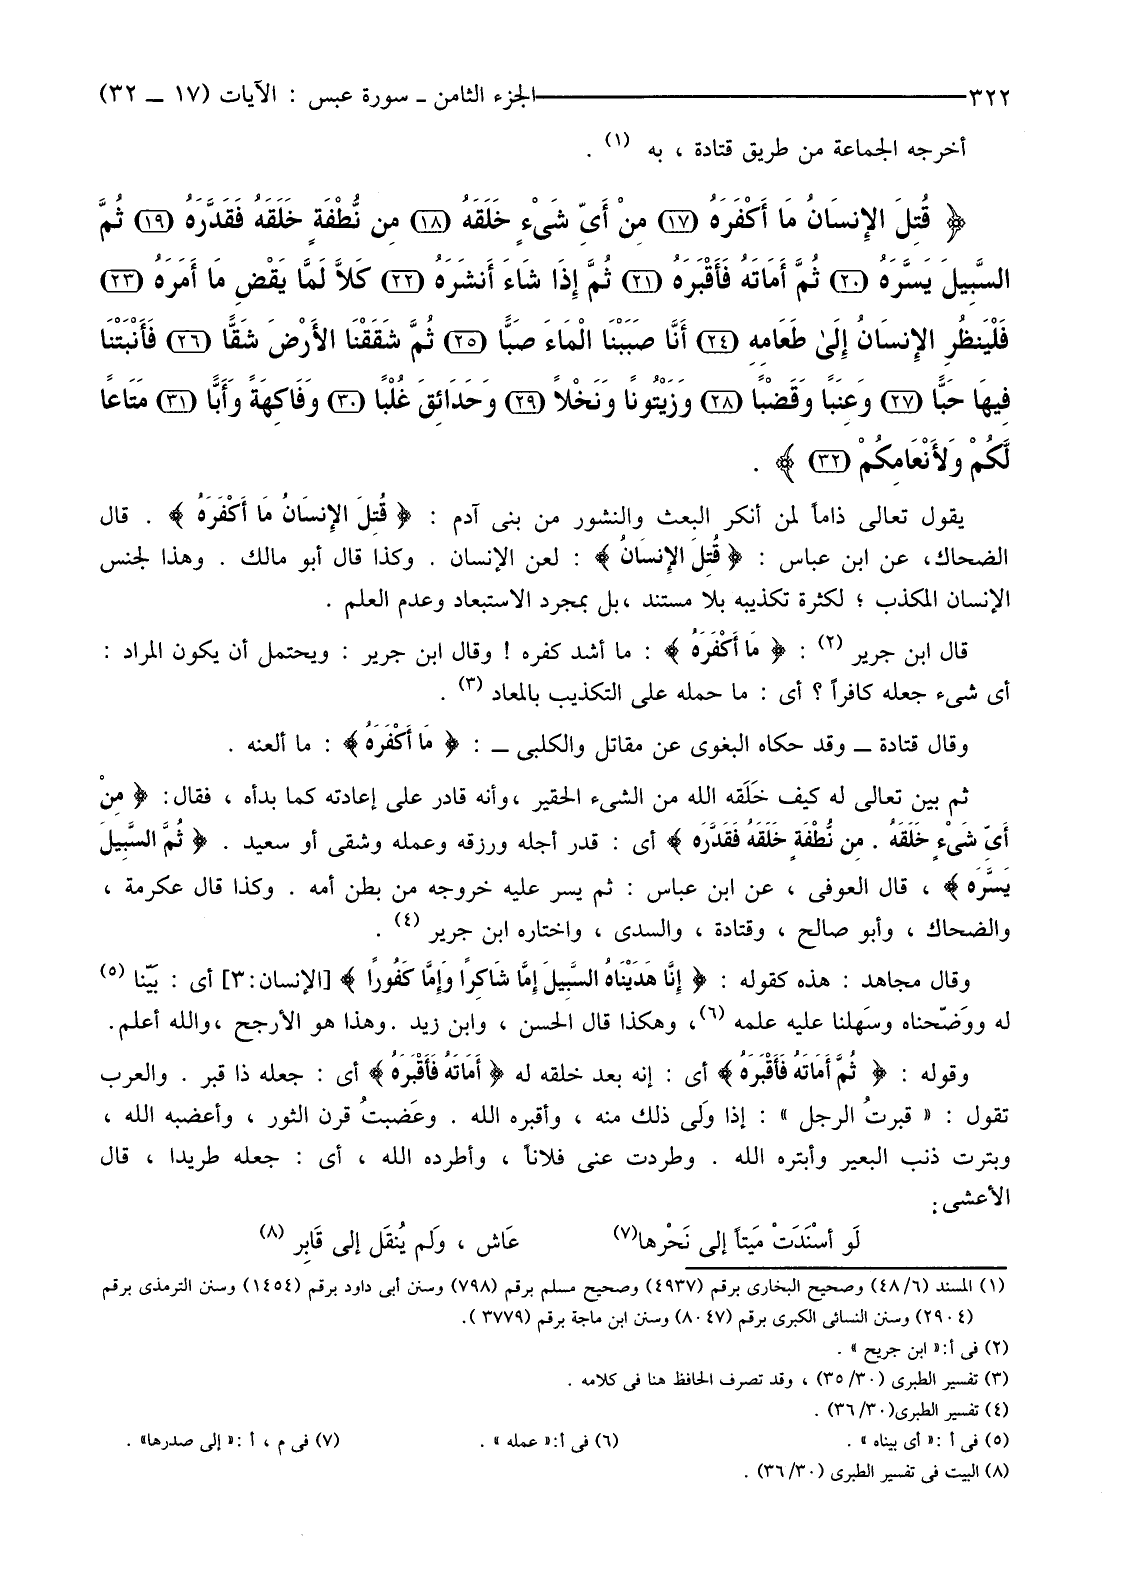 ٣٢٢ الجزء الثامن ـ سورة عبس : الآيات (١٧ ـ ٣٢)
أخرجه الجماعة من طريق قتادة ، به (١) .
﴿ قُتِلَ الإِنسَانُ مَا أَكْفَرَهُ (١٧) مِنْ أَيِّ شَيْءٍ خَلَقَهُ (١٨) مِن نُّطْفَةٍ خَلَقَهُ فَقَدَّرَهُ (١٩) ثُمَّ
السَّبِيلَ يَسَّرَهُ (٢٠) ثُمَّ أَمَاتَهُ فَأَقْبَرَهُ (٢١) ثُمَّ إِذَا شَاءَ أَنشَرَهُ (٢٢) كَلاَّ لَمَّا يَقْضِ مَا أَمَرَهُ (٢٣)
فَلْيَنظُرِ الإِنسَانُ إِلَىٰ طَعَامِهِ (٢٤) أَنَّا صَبَبْنَا الْمَاءَ صَبًّا (٢٥) ثُمَّ شَقَقْنَا الأَرْضَ شَقًّا (٢٦) فَأَنْبَتْنَا
فِيهَا حَبًّا (٢٧) وَعِنَبًا وَقَضْبًا (٢٨) وَزَيْتُونًا وَنَخْلاً (٢٩) وَحَدَائِقَ غُلْبًا (٣٠) وَفَاكِهَةً وَأَبًّا (٣١) مَتَاعًا
لَّكُمْ وَلأَنْعَامِكُمْ (٣٢) ﴾ .
يقول تعالى ذاماً لمن أنكر البعث والنشور من بنى آدم : ﴿ قُتِلَ الإِنسَانُ مَا أَكْفَرَهُ ﴾ . قال
الضحاك، عن ابن عباس : ﴿ قُتِلَ الإِنسَانُ ﴾ : لعن الإنسان . وكذا قال أبو مالك . وهذا لجنس
الإنسان المكذب ؛ لكثرة تكذيبه بلا مستند ،بل بمجرد الاستبعاد وعدم العلم .
قال ابن جرير (٢) : ﴿ مَا أَكْفَرَهُ ﴾ : ما أشد كفره ! وقال ابن جرير : ويحتمل أن يكون المراد :
أى شىء جعله كافراً ؟ أى : ما حمله على التكذيب بالمعاد (٣) .
وقال قتادة ـ وقد حكاه البغوى عن مقاتل والكلبى ـ : ﴿ مَا أَكْفَرَهُ ﴾ : ما ألعنه .
ثم بين تعالى له كيف خَلَقه الله من الشىء الحقير ،وأنه قادر على إعادته كما بدأه ، فقال: ﴿ مِنْ
أَيِّ شَيْءٍ خَلَقَهُ . مِن نُّطْفَةٍ خَلَقَهُ فَقَدَّرَه ﴾ أى : قدر أجله ورزقه وعمله وشقى أو سعيد . ﴿ ثُمَّ السَّبِيلَ
يَسَّرَه ﴾ ، قال العوفى ، عن ابن عباس : ثم يسر عليه خروجه من بطن أمه . وكذا قال عكرمة ،
والضحاك ، وأبو صالح ، وقتادة ، والسدى ، واختاره ابن جرير (٤) .
وقال مجاهد : هذه كقوله : ﴿ إِنَّا هَدَيْنَاهُ السَّبِيلَ إِمَّا شَاكِرًا وَإِمَّا كَفُورًا ﴾ [الإنسان:٣] أى : بَيّنا (٥)
له ووَضّحناه وسَهلنا عليه علمه (٦)، وهكذا قال الحسن ، وابن زيد .وهذا هو الأرجح ،والله أعلم.
وقوله : ﴿ ثُمَّ أَمَاتَهُ فَأَقْبَرَهُ ﴾ أى : إنه بعد خلقه له ﴿ أَمَاتَهُ فَأَقْبَرَهُ ﴾ أى : جعله ذا قبر . والعرب
تقول : « قبرتُ الرجل » : إذا وَلَى ذلك منه ، وأقبره الله . وعَضبتُ قرن الثور ، وأعضبه الله ،
وبترت ذنب البعير وأبتره الله . وطردت عنى فلاناً ، وأطرده الله ، أى : جعله طريدا ، قال
الأعشى:
لَو أسْنَدَتْ مَيتاً إلى نَحْرها(٧) عَاش ، وَلم يُنقَل إلى قَابِر (٨)
(١) المسند (٤٨/٦) وصحيح البخارى برقم (٤٩٣٧) وصحيح مسلم برقم (٧٩٨) وسنن أبى داود برقم (١٤٥٤) وسنن الترمذى برقم
(٢٩٠٤) وسنن النسائى الكبرى برقم (٨٠٤٧) وسنن ابن ماجة برقم (٣٧٧٩ ).
(٢) فى أ:« ابن جريح » .
(٣) تفسير الطبرى (٣٥/٣٠) ، وقد تصرف الحافظ هنا فى كلامه .
(٤) تفسير الطبرى(٣٦/٣٠) .
(٥) فى أ :« أى بيناه » . (٦) فى أ:« عمله » . (٧) فى م ، أ :« إلى صدرها» .
(٨) البيت فى تفسير الطبرى (٣٦/٣٠) .